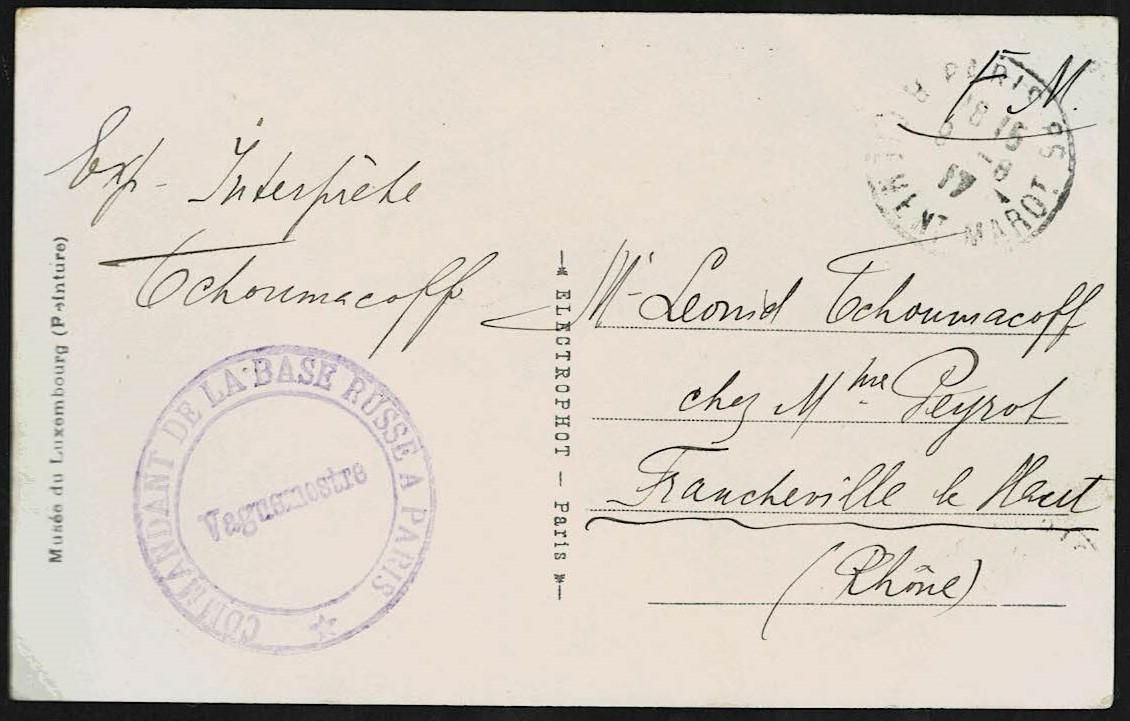 F. M.
PARIS 98
18 15
8
17
MENT MAROT
Exp. Interprète
Tchoumacoff
Mr Leonid Tchoumacoff
chez Mme Peyrot
Francheville le Haut
(Rhône)
COMMANDANT DE LA BASE RUSSE A PARIS
Vaguemestre
Musée du Luxembourg (Peinture)
ELECTROPHOT - Paris